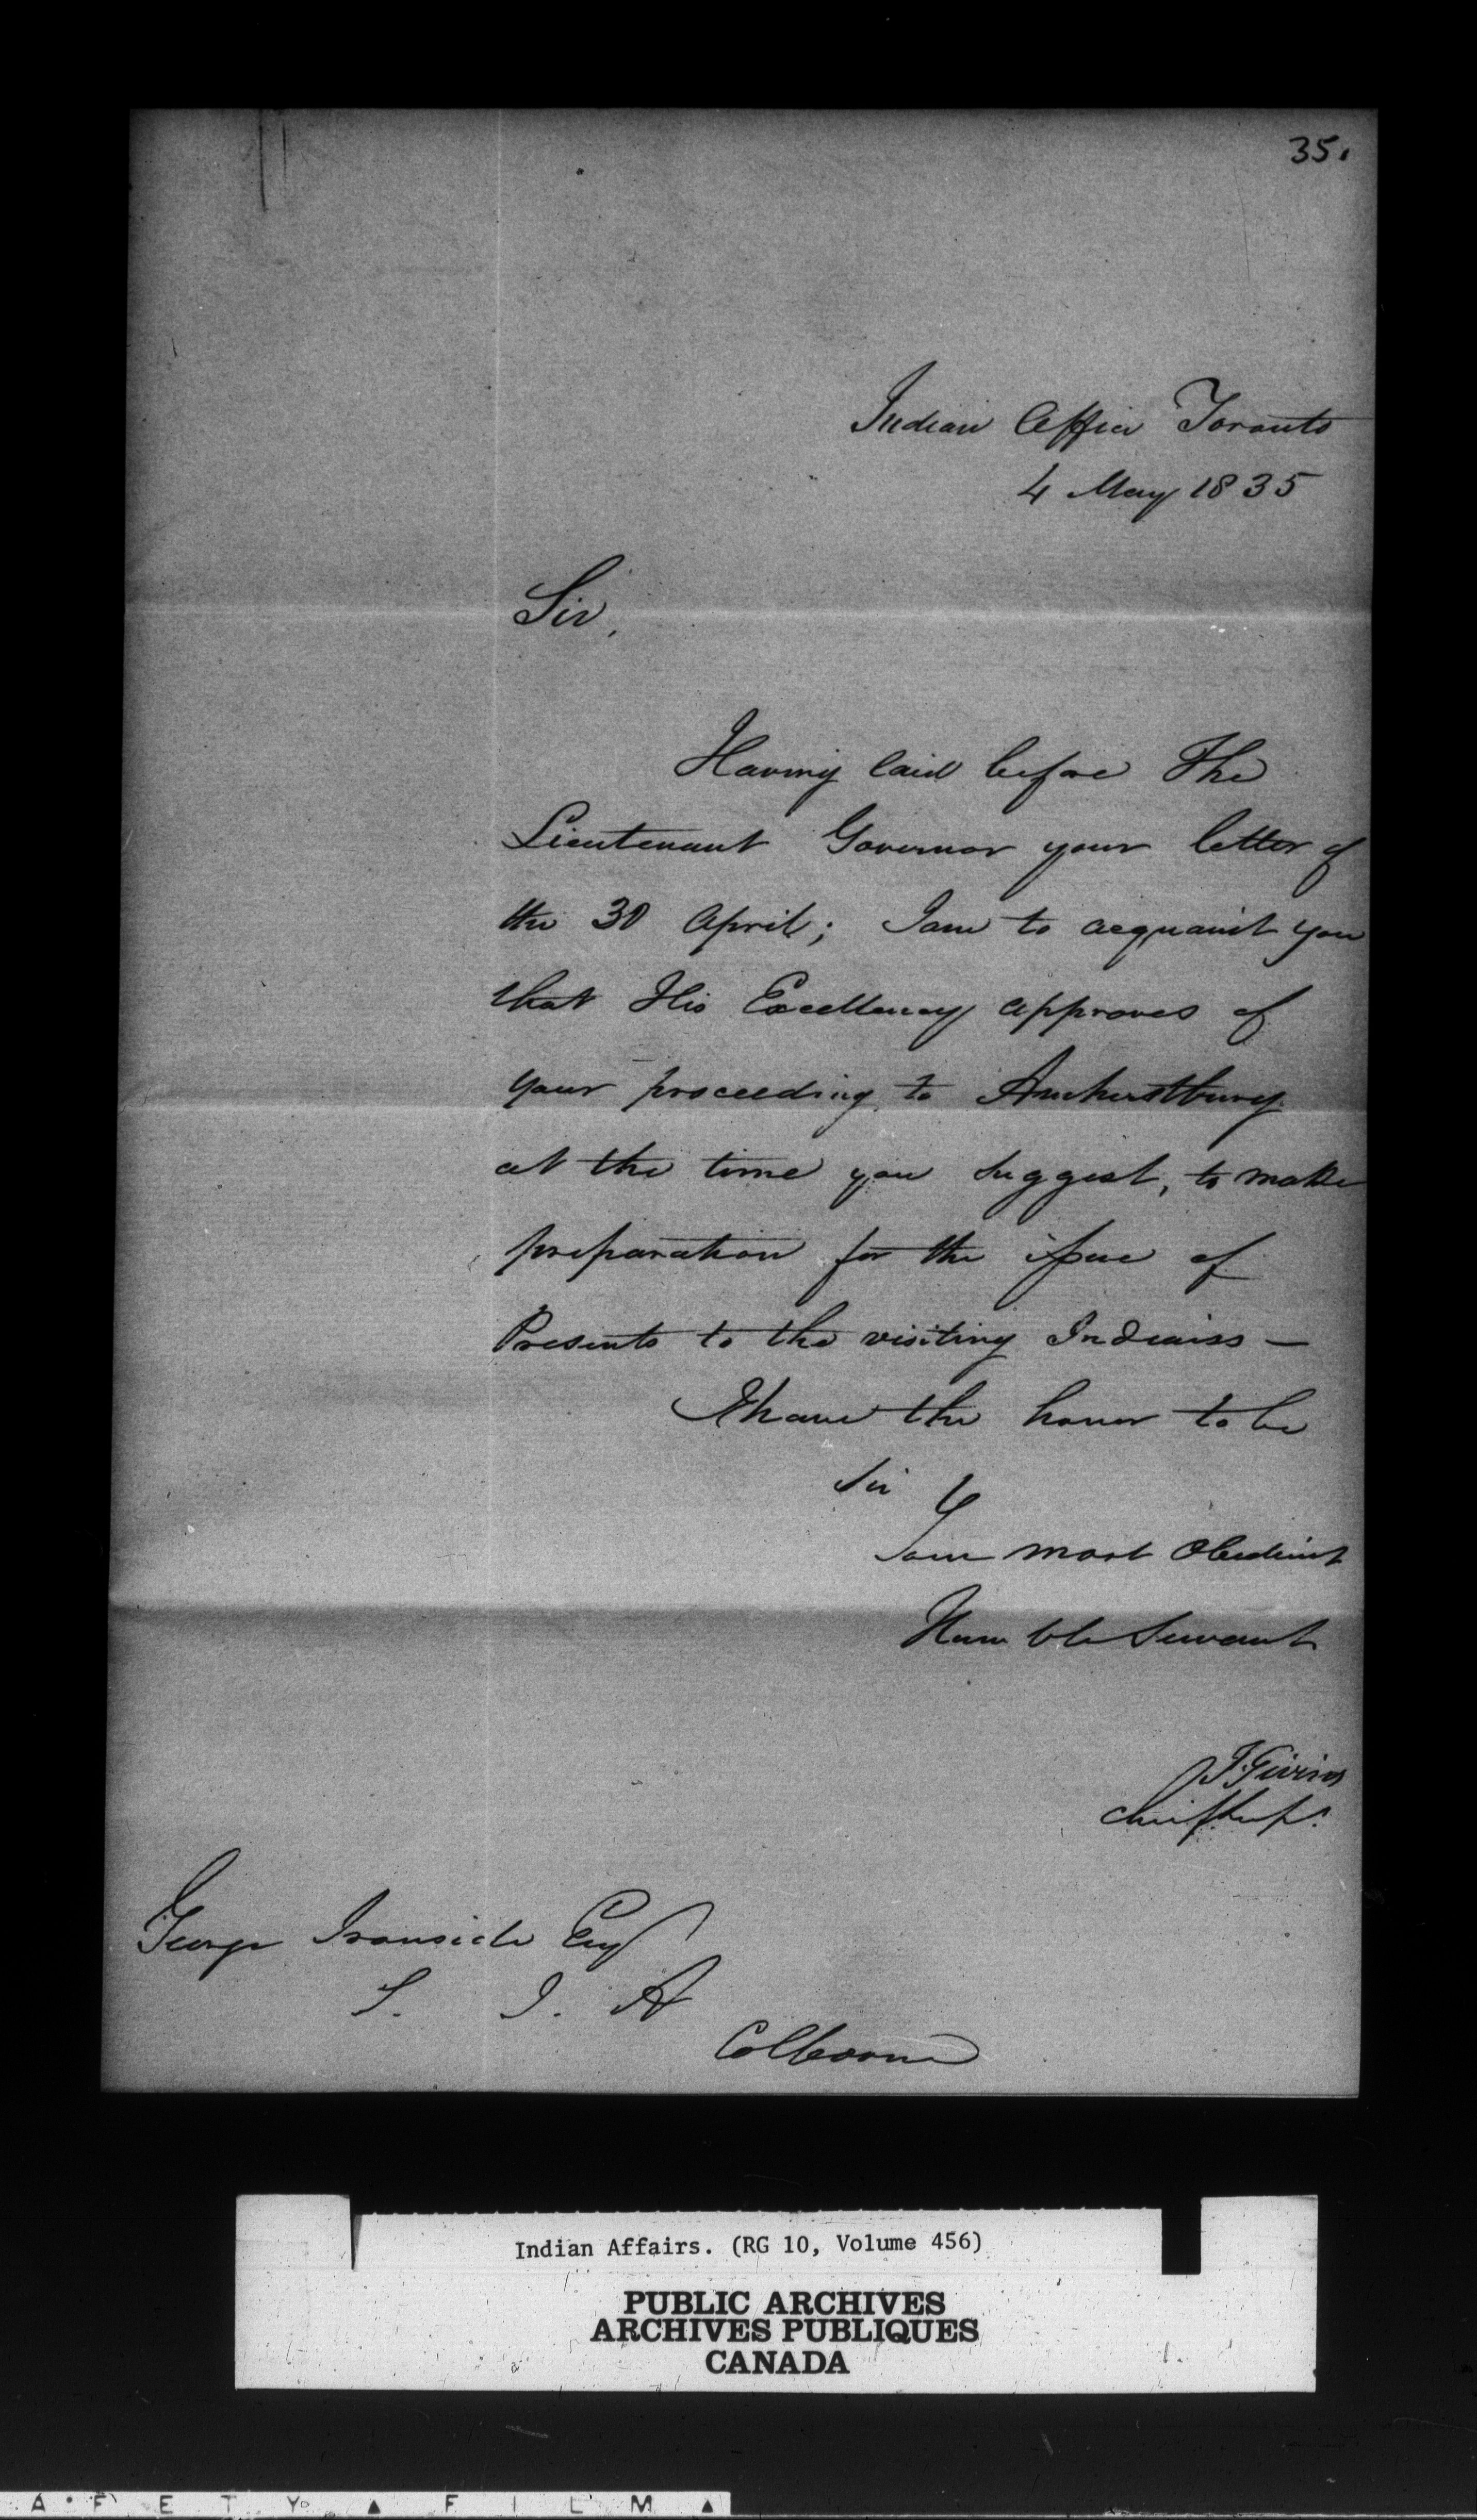 35.
Indian Office Toronto
4 May 1835
Sir,
Having laid before The
Lieutenant Governor your letter of
the 30 April; I am to acquaint you
that His Excellency approves of
your proceeding to Amherstburg
at the time you suggest, to make
preparation for the issue of
Presents to the visiting Indians —
I have the honor to be
Sir
Your most Obedient
Humble Servant
J Givins
Chief Supt.
George Ironside Esq
S. I. A
Colborne
Indian Affairs. (RG 10, Volume 456)
PUBLIC ARCHIVES
ARCHIVES PUBLIQUES
CANADA
A F E T Y ▲ F I L M ▲